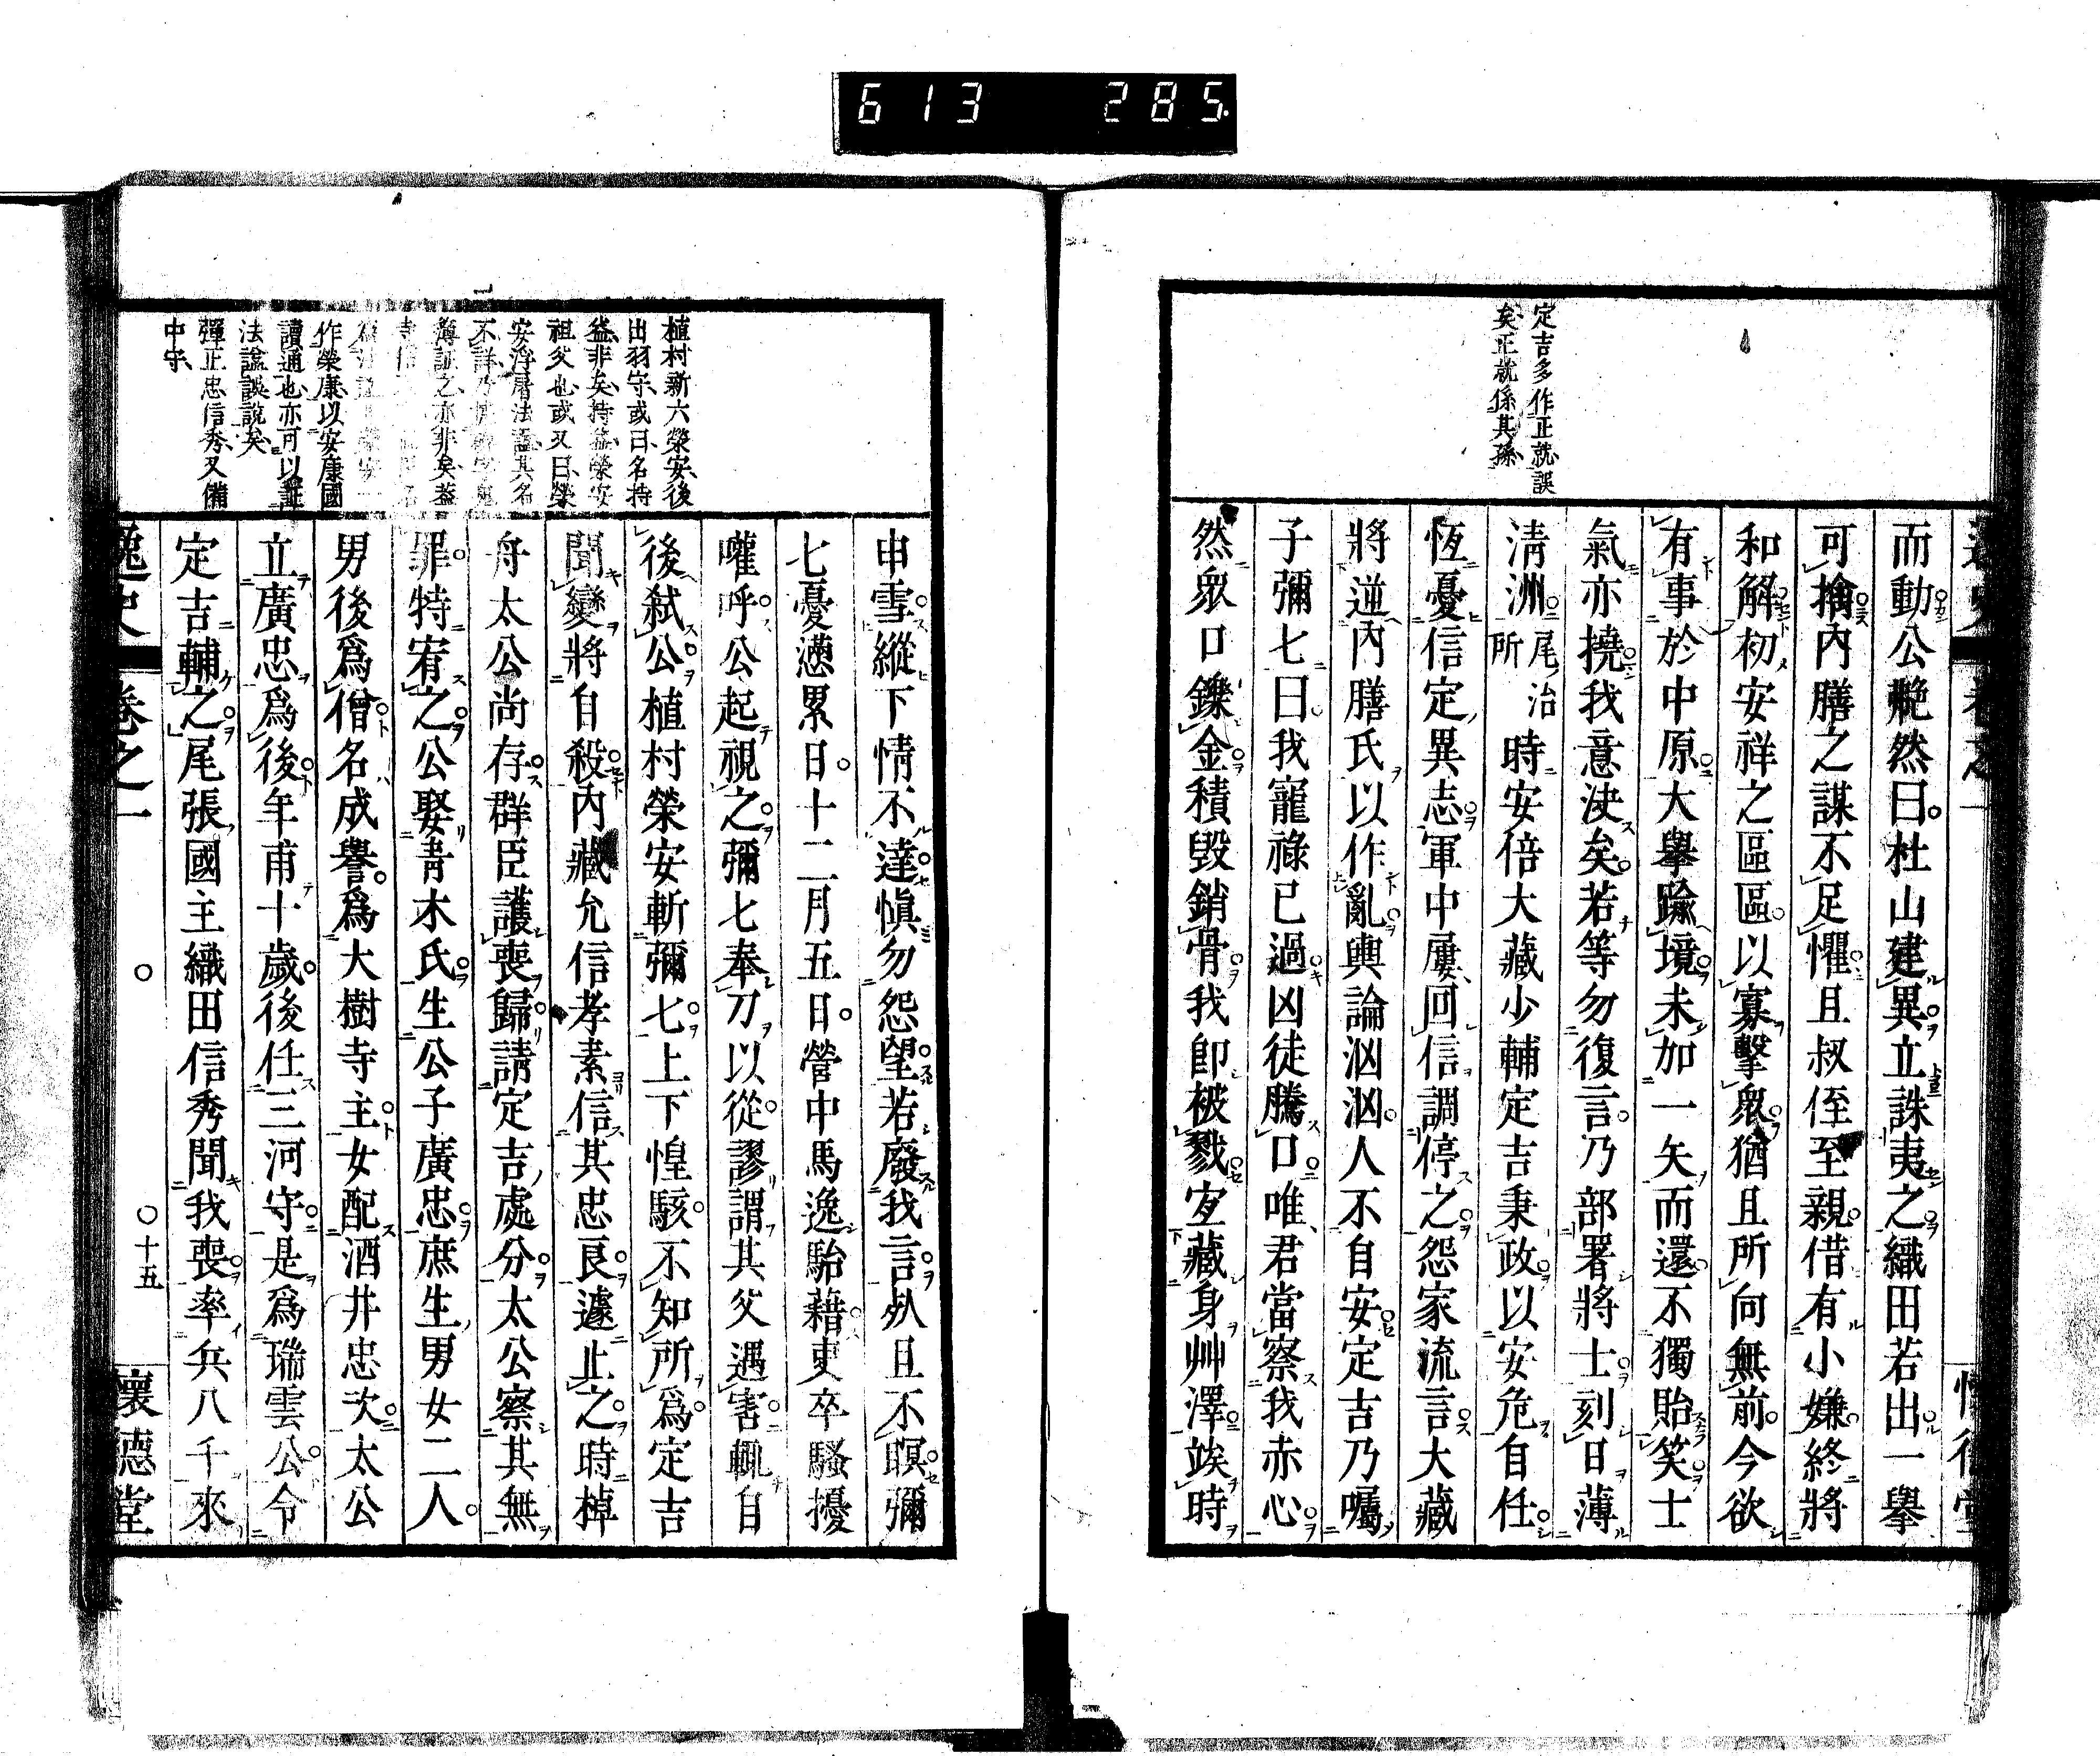 613 285
定吉多作正就誤
矣正就係其孫
而動公艴然曰杜山建異立誅夷之織田若出一擧
可擒內膳之謀不足懼且叔侄至親借有小嫌終將
和解初安祥之區區以寡擊衆猶且所向無前今欲
有事於中原大擧踰境未加一矢而還不獨貽笑士
氣亦撓我意決矣若等勿復言乃部署將士刻日薄
淸洲尾治所時安倍大藏少輔定吉秉政以安危自任
恆憂信定異志軍中屢回信調停之怨家流言大藏
將逆內膳氏以作亂輿論汹汹人不自安定吉乃囑
子彌七曰我寵祿已過凶徒騰口唯君當察我赤心
然衆口鑠金積毀銷骨我卽被戮宐藏身艸澤竢時
植村新六榮安後
出羽守或曰名持
益非矣持益榮安
祖父也或又曰榮
安浮屠法諡其名
不詳乃
薄証之亦非矣蓋
作榮康以安康國
讀通也亦可以証
法諡誤說矣
彈正忠信秀又備
中守
申雪縱下情不達愼勿怨望若廢我言死且不瞑彌
七憂懣累日十二月五日營中馬逸駘藉吏卒騷擾
嚾呼公起視之彌七奉刀以從謬謂其父遇害輒自
後弑公植村榮安斬彌七上下惶駭不知所爲定吉
聞變將自殺內藏允信孝素信其忠良遽止之時棹
舟太公尚存群臣護喪歸請定吉處分太公察其無
罪特宥之公娶靑木氏生公子廣忠庶生男女二人
男後爲僧名成譽爲大樹寺主女配酒井忠次太公
立廣忠爲後年甫十歲後任三河守是爲瑞雲公令
定吉輔之尾張國主織田信秀聞我喪率兵八千來
逸史 卷之一 十五 懷德堂